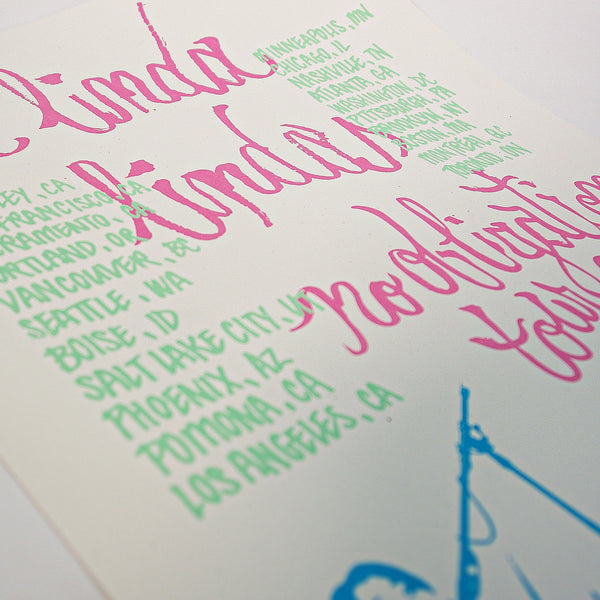 linda
lindas
MINNEAPOLIS, MN
CHICAGO, IL
NASHVILLE, TN
ATLANTA, GA
WASHINGTON, DC
PITTSBURGH, PA
BROOKLYN, NY
BOSTON, MA
MONTREAL, QC
no obligation
tour
LEY, CA
FRANCISCO, CA
RAMENTO, CA
ORTLAND, OR
VANCOUVER, BC
SEATTLE, WA
BOISE, ID
SALT LAKE CITY, UT
PHOENIX, AZ
POMONA, CA
LOS ANGELES, CA